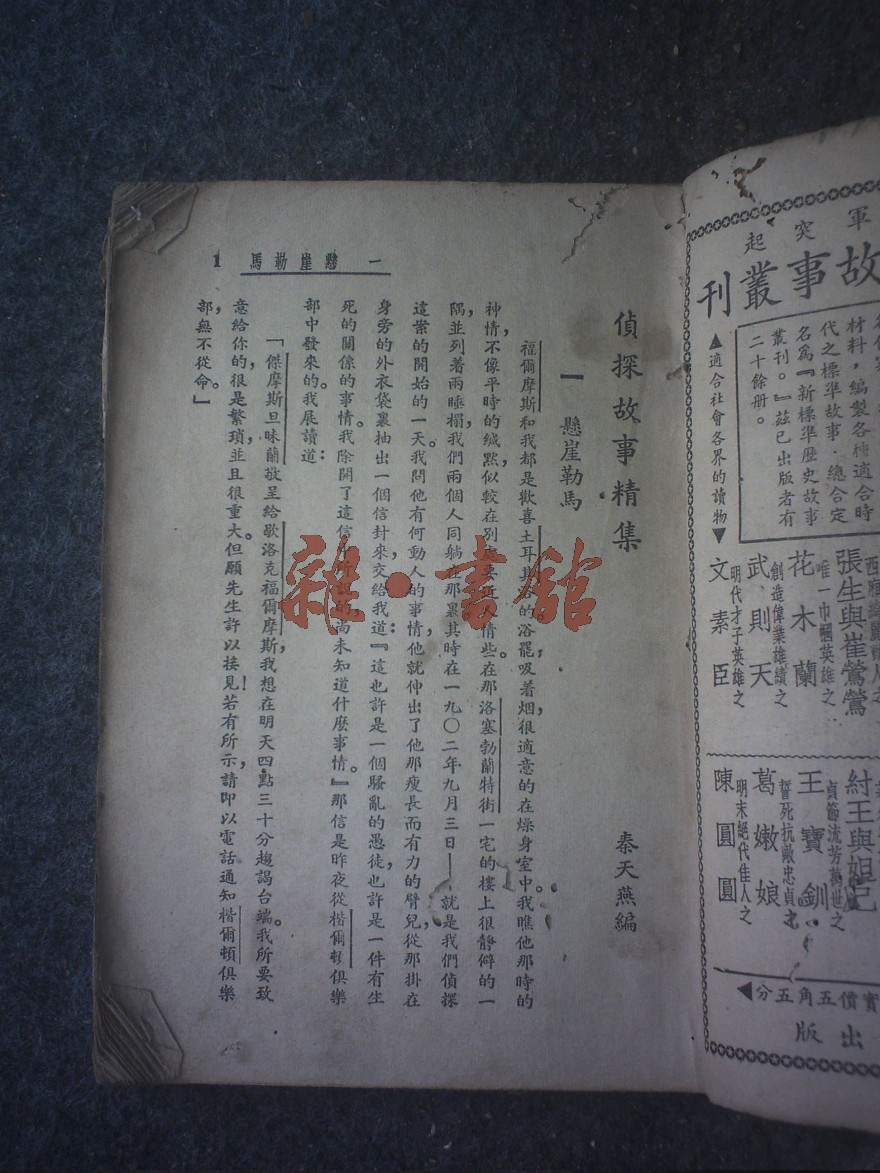 一 懸崖勒馬 1
偵探故事精集
秦天燕編
一 懸崖勒馬
福爾摩斯和我都是歡喜土耳其浴的浴罷吸着烟,很適意的在燥身室中。我瞧他那時的
神情不像平時的緘默似較在別處要近人情些。在那洛塞勃蘭特街一宅的樓上很靜僻的一
隅,並列着兩睡榻,我們兩個人同躺在那裏其時在一九〇二年九月三日——就是我們偵探
這案的開始的一天。我問他有何動人的事情,他就伸出了他那瘦長而有力的臂兒,從那掛在
身旁的外衣袋裏抽出一個信封來,交給我道:『這也許是一個騷亂的愚徒,也許是一件有生
死的關係的事情。我除開了這信中所說的尚未知道什麼事情。』那信是昨夜從楷爾頓俱樂
部中發來的。我展讀道:
「傑摩斯旦昧蘭敬呈給歇洛克福爾摩斯,我想在明天四點三十分趨謁台端。我所要致
意給你的,很是繁瑣,並且很重大。但願先生許以接見!若有所示,請即以電話通知楷爾頓俱樂
部,無不從命。」
雜·書館
軍突起
故事叢刊
材料,編製各種適合時
代之標準故事,總合定
名為『新標準歷史故事
叢刊。』茲已出版者有
二十餘册。
▲適合社會各界的讀物▼
張生與崔鶯鶯
唯一巾幗英雄之
花木蘭
創造偉業雄績之
武則天
明代才子英雄之
文素臣
紂王與妲己
貞節流芳萬世之
王寶釧
誓死抗敵忠貞之
葛嫩娘
明末絕代佳人之
陳圓圓
實價五角五分◀
出版